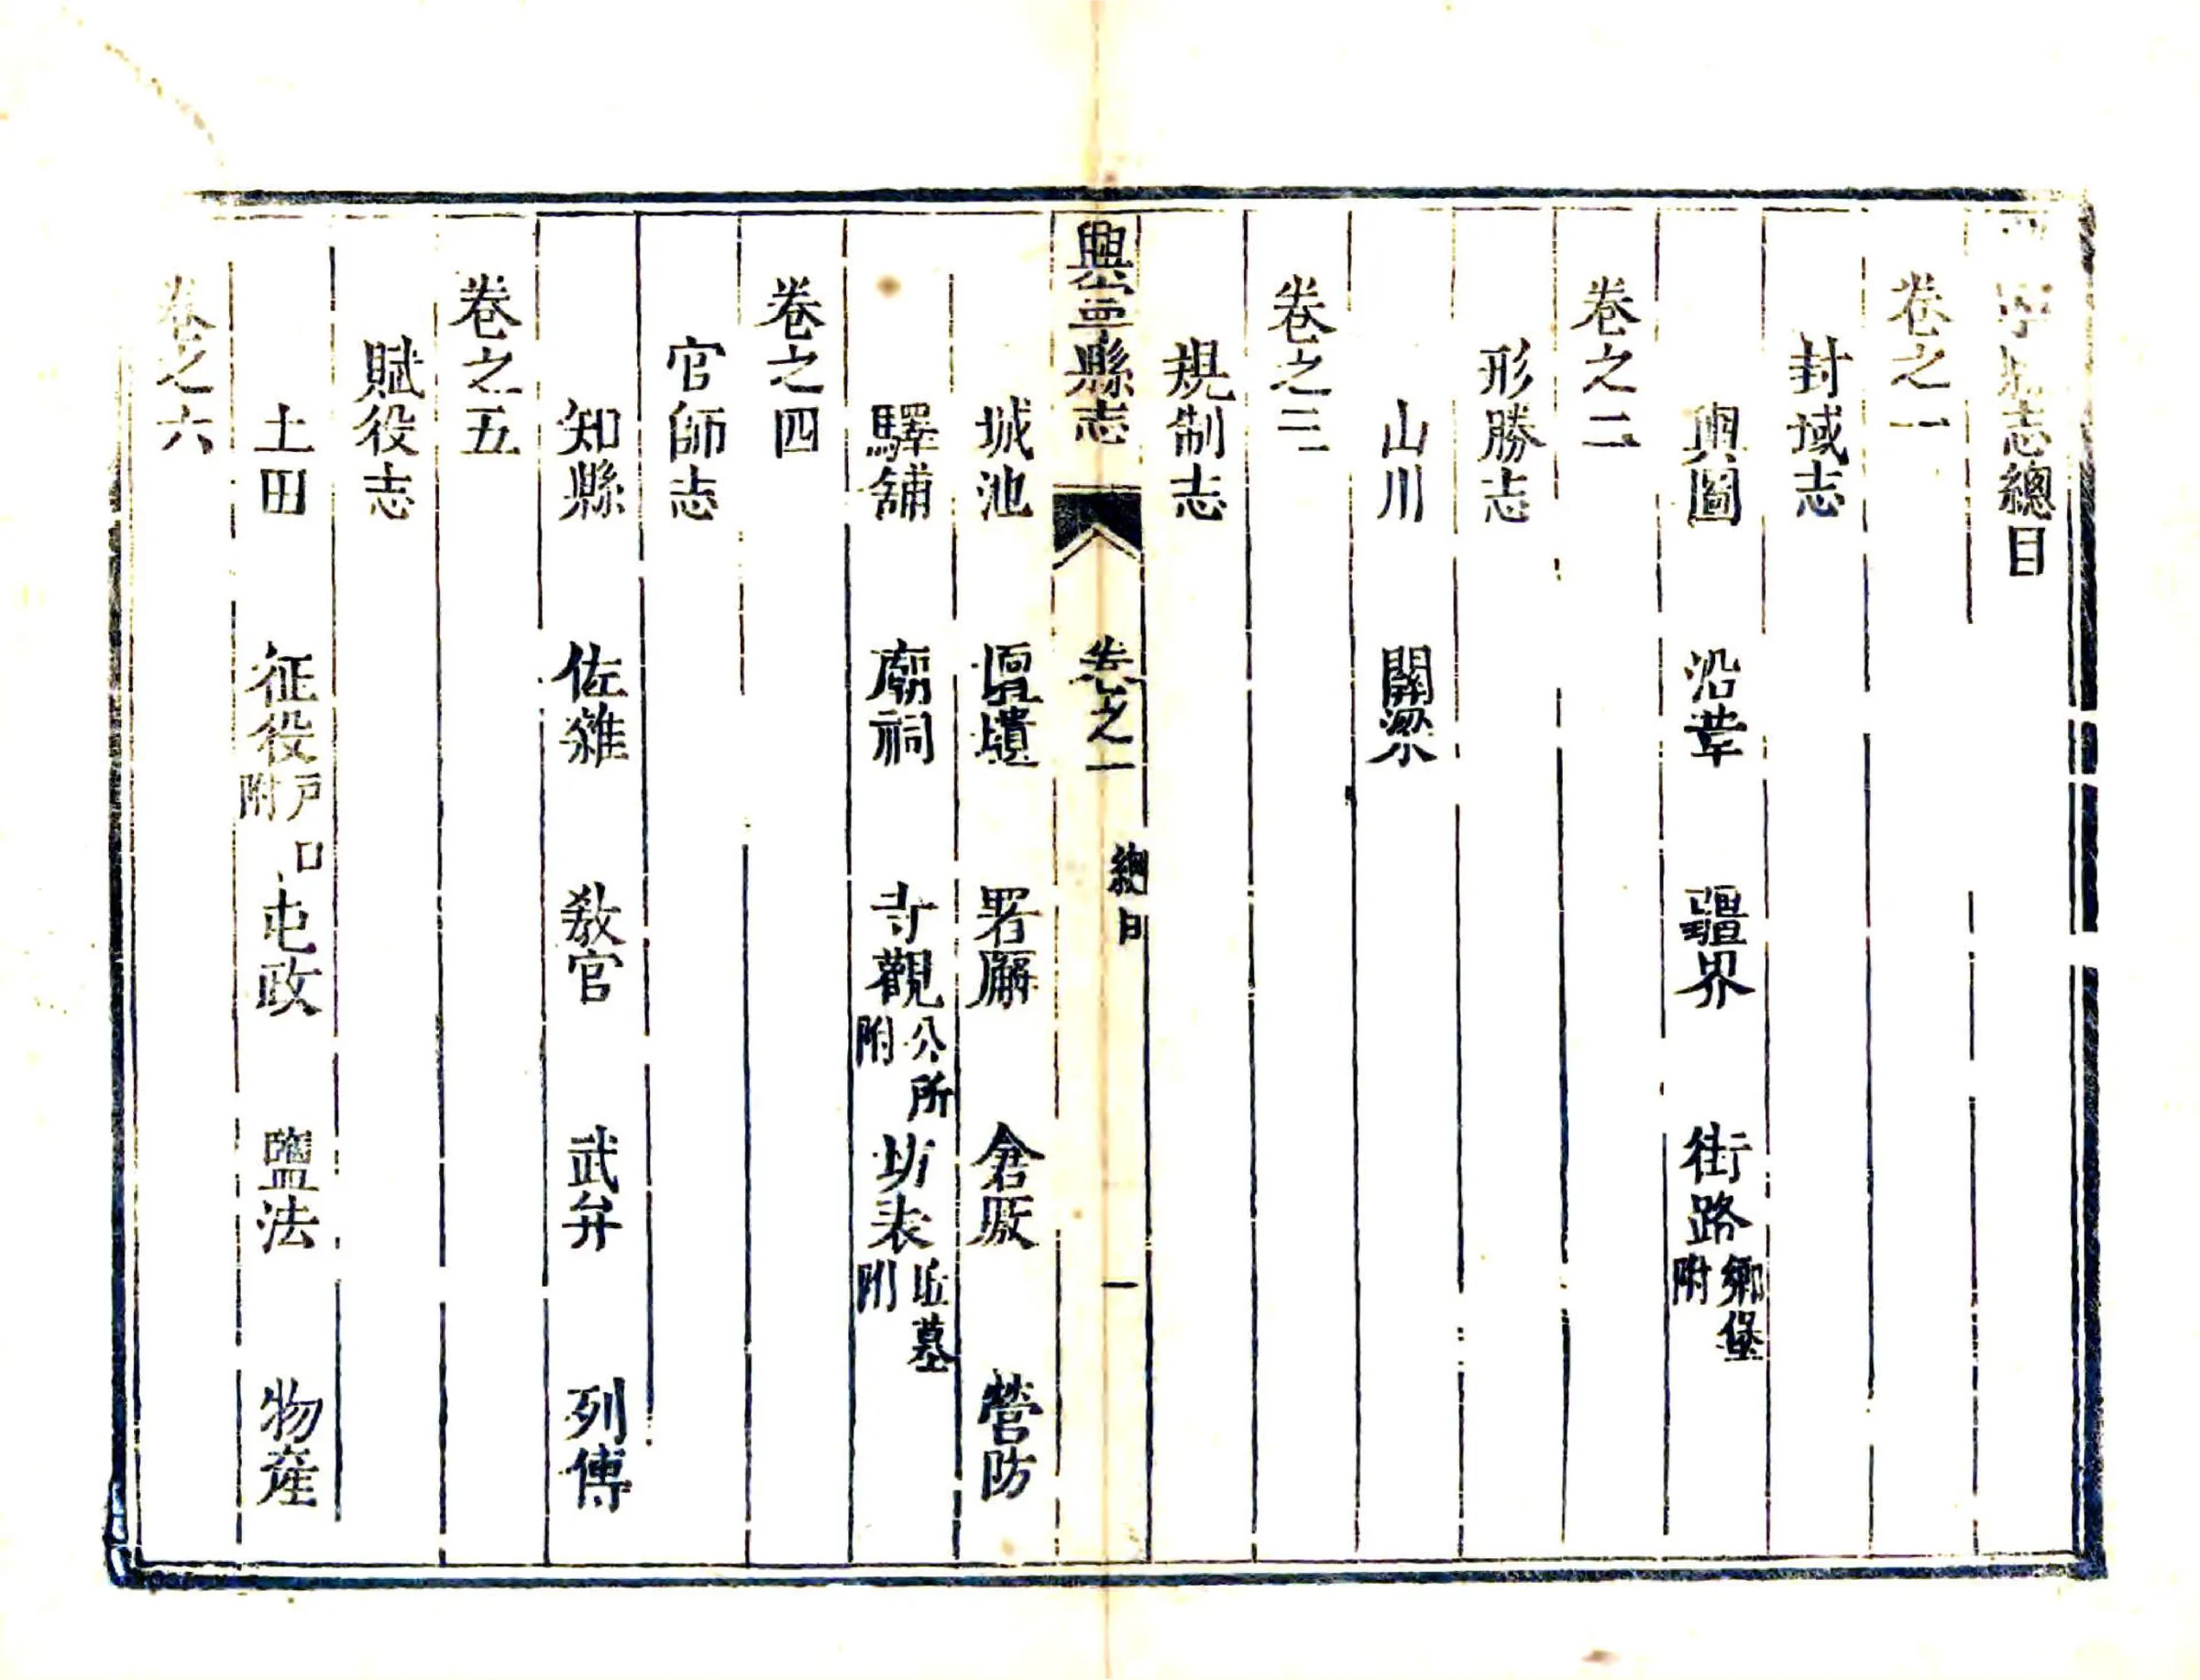 寧縣志總目
卷之一
封域志
輿圖　沿革　疆界　街路鄉堡附
卷之二
形勝志
山川　關梁
卷之三
規制志
興寧縣志　卷之一　總目　一
城池　壇壝　署廨　倉廒　營防
驛舖　廟祠　寺觀公所附　坊表坵墓附
卷之四
官師志
知縣　佐雜　教官　武弁　列傳
卷之五
賦役志
土田　征役戶口附　屯政　鹽法　物產
卷之六